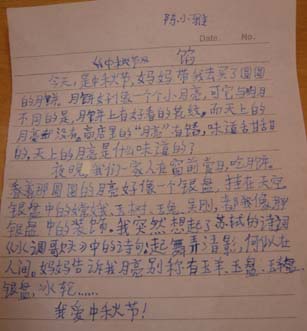 陈小雅
Date.    No.
《中秋节》
今天,是中秋节,妈妈带我去买了圆圆
的月饼。月饼好像一个个小月亮,可它与月
不同的是,月饼上有好看的花纹,而天上的
月亮没有。商店里的“月亮”有甜,味道甜甜
的,天上的月亮是什么味道的?
夜晚,我们一家人在窗前赏月,吃月饼。
看着那圆圆的月亮好像一个银盘,挂在天空
银盘中的嫦娥、玉树、玉兔、吴刚,都我像那
银盘中的装饰。我突然想起了苏轼的诗词
《水调歌头》中的诗句:起舞弄清影,何似在
人间。妈妈告诉我月亮别称有玉羊、玉盘、
银盘、冰轮……
我爱中秋节!